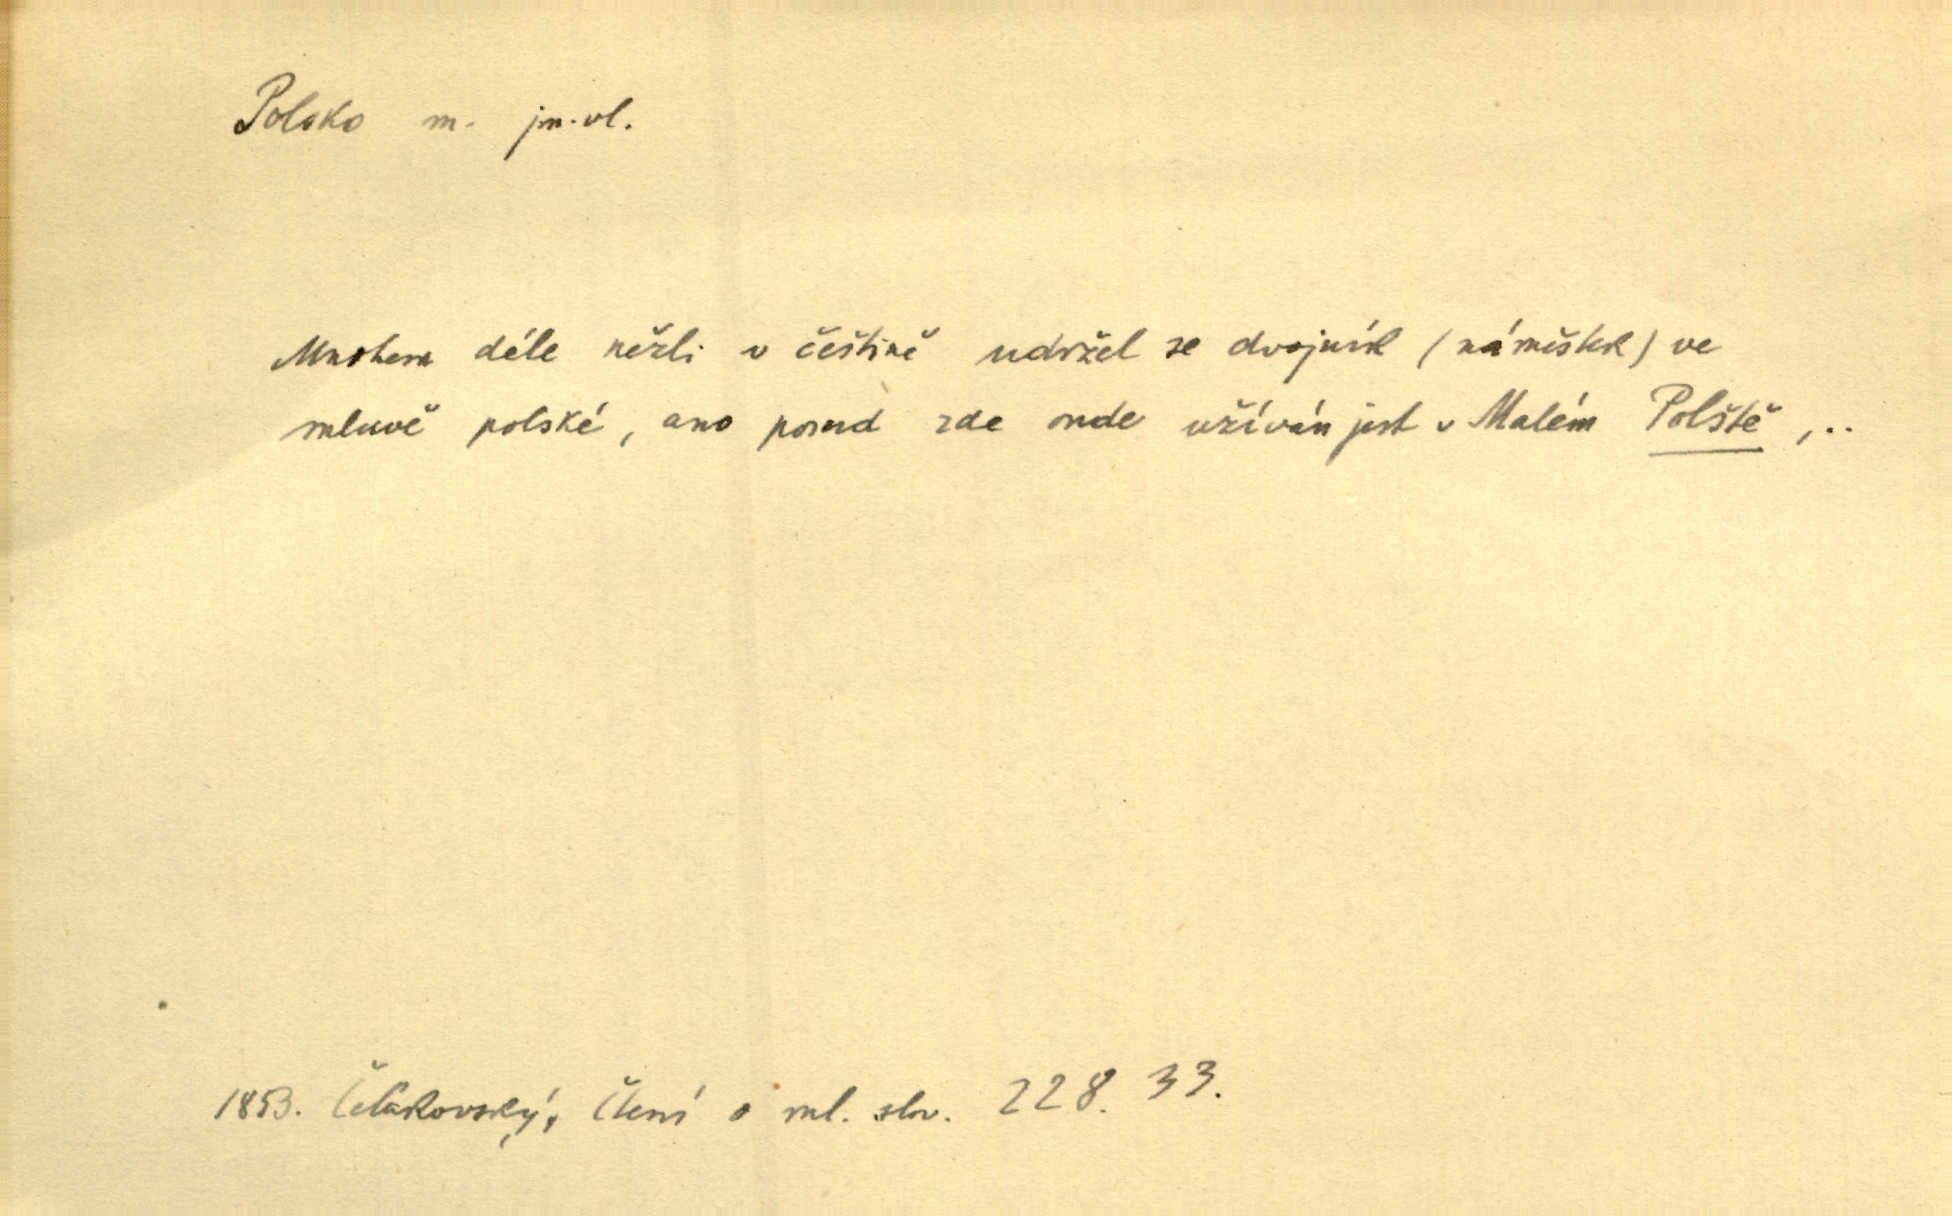 Polsko m. jm. vl.
Mnohem déle nežli v češtině udržel se dvojník (náměstek) ve
mluvě polské, ano posud zde onde užíván jest v Malém Polště,..
1853. Čelakovský, Čtení o ml. slov. 228. 33.